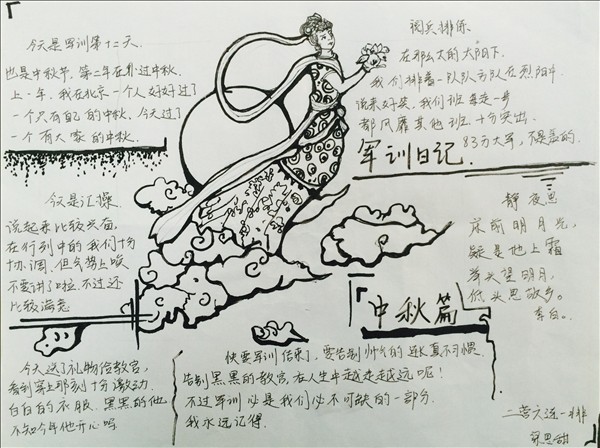 今天是军训第十二天.
也是中秋节,第二年在外过中秋,
上一年,我在北京一个人好好过了
一个只有自己的中秋,今天过了
一个有大家的中秋.
今天是汇操.
说起来比较兴奋,
在行列中的我们十分
协调.但气势上唉
不要讲了啦.不过还
比较满意
今天送了礼物给教官,
看到穿上那刻十分激动.
白白的衣服.黑黑的他
不知今年他开心吗
阅兵排练
在那么大的太阳下.
我们排着一队队方队在烈阳中.
说来好笑,我们班每走一步
都风靡其他班.十分突出.
83万大军,不是盖的.
军训日记.
静夜思
床前明月光,
疑是地上霜
举头望明月,
低头思故乡。
李白..
「中秋篇」
快要军训结束了,要告别帅气的连长真不习惯.
告别黑黑的教官,在人生中越走越远呢!
不过军训必是我们必不可缺的一部分.
我永远记得.
二营六连一排